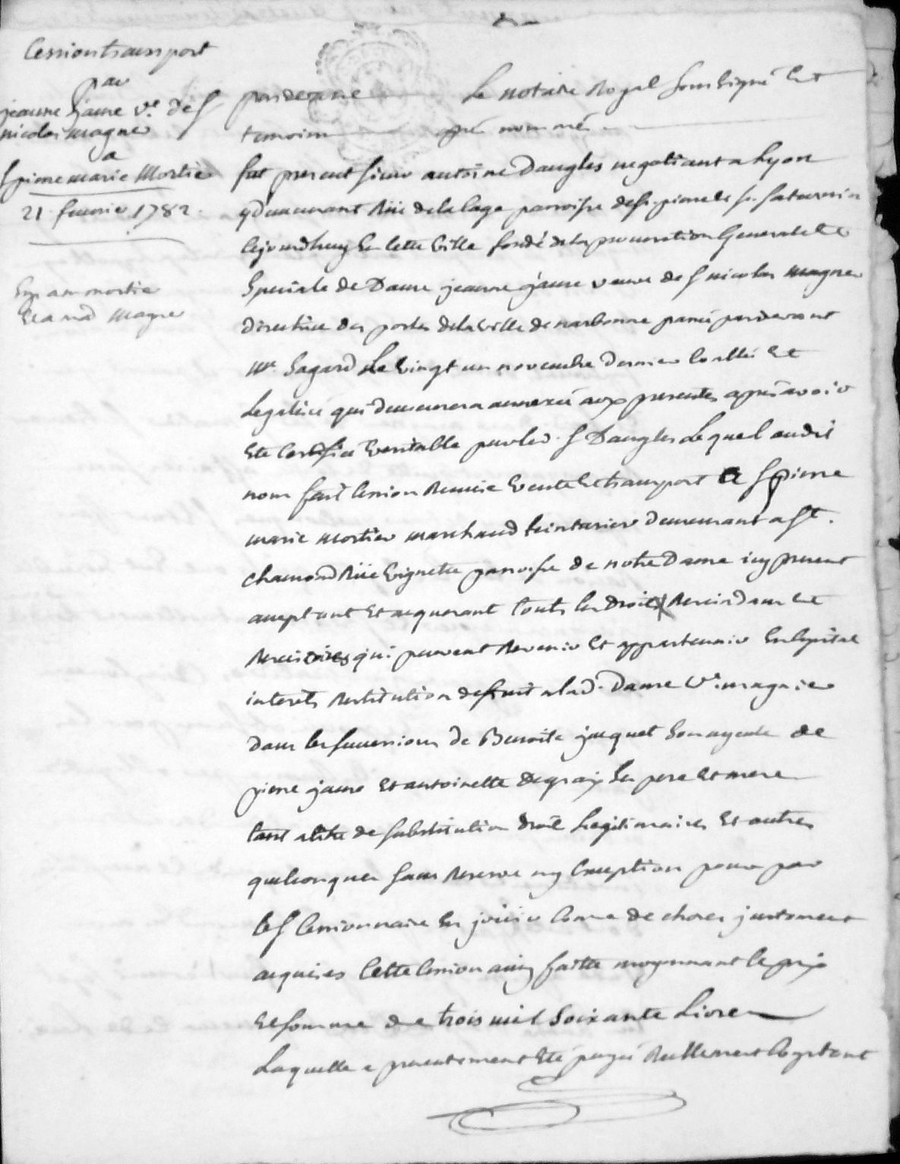 Cession transport
par
jeanne jaure v.e de S
nicolas magne
a
S pierre marie Mortier
21 fevrier 1782.
Exp a m mortier
Et a md magne
pardevant Le notaire Royal soussigné Et
temoins après nommés
fut present sieur antoine Daugles negotiant a Lyon
y Demeurant Rüe de la Cage parroisse de St. pierre & St. Saturnin
Cejourdhuy En Cette Ville fondé de la procuration Generale Et
Speciale de Dame jeanne jaure veuve de S nicolas magne
directrice des postes de la Ville de narbonne passée pardevant
Me. Sagard Le Vingt un novembre Dernier Controllé Et
Legalisé qui demeurera annexée aux presentes après avoir
Eté Certifiée Veritable par led. S Daugles Lequel audit
nom fait Cession Remise Vente Et transport a S pierre
marie Mortier marchand teinturier demeurant a St.
chamond Rüe Vignette parroisse de notre Dame icy present
acceptant Et acquerant touts les droits Rescindant Et
Rescisoires qui peuvent Revenir Et appartenir En Capital
interets Restitution de fruit a lad. Dame Ve. magne
dans les successions de Benoite jacquet Son ayeule de
pierre jaure Et antoinette Degraix Ses pere Et mere
tant a titre de Substitution droit Legitimaires Et autres
quelconques sans Reserve ny Exception pour par
led S Cessionnaire En jouir Comme de choses justement
acquises Cette Cession ainsy faitte moyennant Le prix
Et somme de trois mil Soixante Livres
Laquelle a presentement Eté payée Reellement Comptant